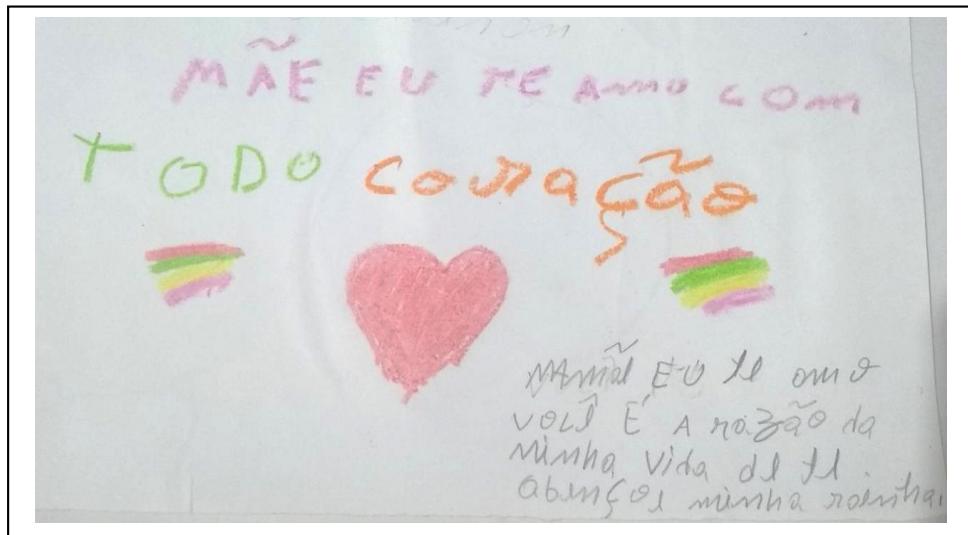 MÃE EU TE AMO COM
TODO CORAÇÃO
MAmãe EU te amo
você É A razão da
minha vida de te
abençoe minha rainha.